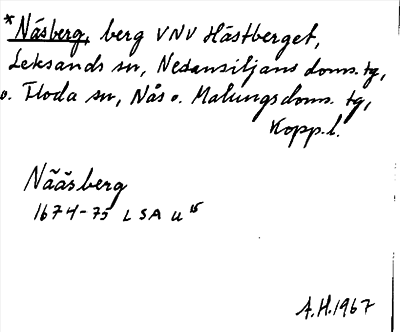 *Näsberg, berg VNV Hästberget,
Leksands sn, Nedansiljans doms. tg,
o. Floda sn, Nås o. Malungs doms. tg,
Kopp. l.
Nääsberg
1674-75 LSA U 15
A.H. 1967